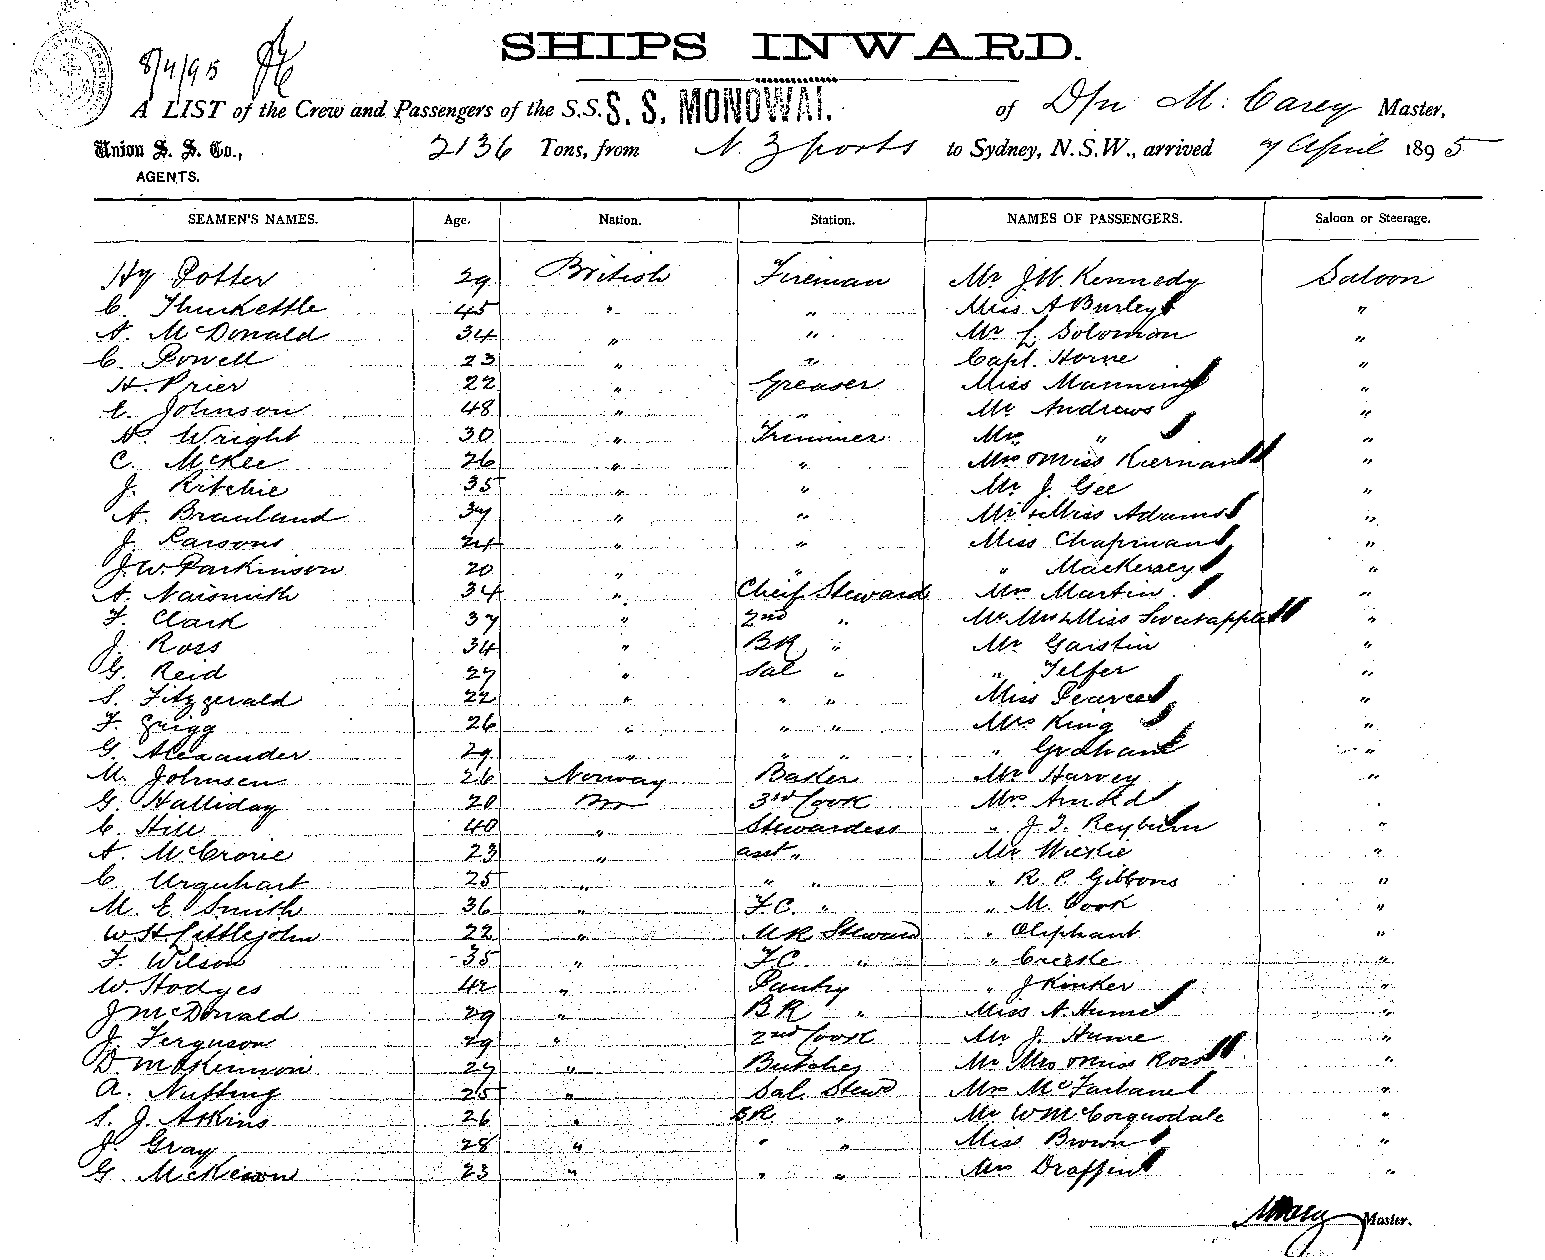 SHIPS INWARD.
8/4/95
A LIST of the Crew and Passengers of the S.S. S. S. MONOWAI. of Dpn M. Carey Master,
Union S. S. Co., 2136 Tons, from N. Z ports to Sydney, N.S.W., arrived 7 April 1895
AGENTS.
SEAMEN'S NAMES. Age. Nation. Station. NAMES OF PASSENGERS. Saloon or Steerage.
Hy Potter 29 British Fireman Mr J W. Kennedy Saloon
C. Thurkettle 45 " " Miss A Burley "
A. McDonald 34 " " Mr L Solomon "
C. Powell 23 " " Capt. Horne "
H. Prier 22 " Greaser Miss Manning "
C. Johnson 48 " " Mr Andrews "
A. Wright 30 " Trimmer Mrs " "
C. McKee 26 " " Mrs & Miss Kiernan "
J. Ritchie 35 " " Mr J. Gee "
A. Brauland 37 " " Mr & Miss Adams "
J. Parsons 24 " " Miss Chapman "
J. W. Parkinson 20 " " " Mackersey "
A. Naismith 34 " Cheif Steward Mrs Martin "
F. Clark 37 " 2nd " Mr Mrs & Miss Sweetapple "
J. Ross 34 " BR " Mr Garstin "
G. Reid 27 " Sal " " Telfer "
S. Fitzgerald 22 " " " Miss Pearce "
F. Grigg 26 " " " Mrs King "
G. Alexander 29 " " " " Graham "
M. Johnsen 26 Norway Baker Mr Harvey "
G. Halliday 20 Br 3rd Cook Mrs Arnold "
C. Hill 40 " Stewardess " J. T. Reyburn "
A. McCrorie 23 " asst " Mr Wickie "
C. Urquhart 25 " " " " R. P. Gibbons "
M. E Smith 36 " F.C. " " M. Cook "
W. H. Littlejohn 22 " M R Steward " Oliphant "
F. Wilson 35 " F.C. " " "
W. Hodges 42 " Pantry " J Kinker "
J McDonald 29 " B R " Miss A. Hume "
J. Ferguson 29 " 2nd Cook Mr J. Hume "
D. McKinnon 27 " Butcher Mr Mrs & Miss Ross "
A. Nutting 25 " Sal. Stewd Mrs McFarlane "
S. J. Atkins 26 " B R. " Mr W McCorquodale "
J. Gray 28 " " " Miss Brown "
G. McKeown 23 " " " Mrs Draffin "
M Carey Master.